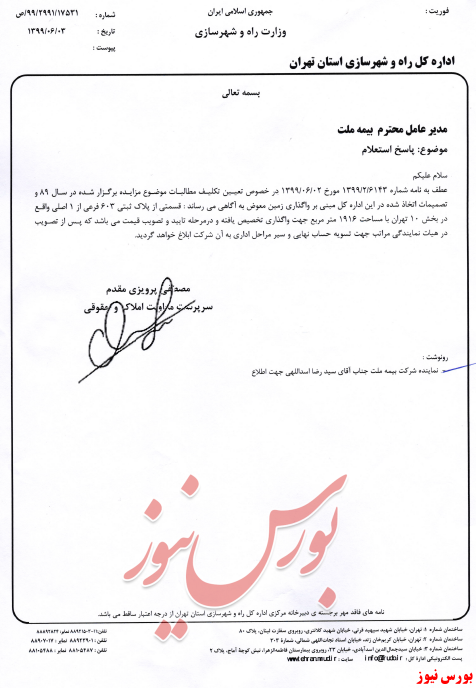 جمهوری اسلامی ایران
وزارت راه و شهرسازی
فوریت :
شماره : ۹۹/۲۹۹۱/۱۷۵۳۱/ص
تاریخ : ۱۳۹۹/۰۶/۰۳
پیوست :
اداره کل راه و شهرسازی استان تهران
بسمه تعالی
مدیر عامل محترم بیمه ملت
موضوع: پاسخ استعلام
سلام علیکم
عطف به نامه شماره ۱۳۹۹/۲/۶۱۴۳ مورخ ۱۳۹۹/۰۶/۰۲ در خصوص تعیین تکلیف مطالبات موضوع مزایده برگزار شده در سال ۸۹ و
تصمیمات اتخاذ شده در این اداره کل مبنی بر واگذاری زمین معوض به آگاهی می رساند : قسمتی از پلاک ثبتی ۶۰۳ فرعی از ۱ اصلی واقع
در بخش ۱۰ تهران با مساحت ۱۹۱۶ متر مربع جهت واگذاری تخصیص یافته و درمرحله تایید و تصویب قیمت می باشد که پس از تصویب
در هیات نمایندگی مراتب جهت تسویه حساب نهایی و سیر مراحل اداری به آن شرکت ابلاغ خواهد گردید.
مصطفی پرویزی مقدم
سرپرست معاونت املاک و حقوقی
رونوشت :
نماینده شرکت بیمه ملت جناب آقای سید رضا اسداللهی جهت اطلاع
بورس نیوز
نامه های فاقد مهر برجسته ی دبیرخانه مرکزی اداره کل راه و شهرسازی استان تهران از درجه اعتبار ساقط می باشد.
ساختمان شماره ۱: تهران، خیابان شهید سپهبد قرنی، روبروی سفارت لبنان، پلاک ۸۰
ساختمان شماره ۲: تهران، خیابان کریم‌خان زند، خیابان استاد نجات‌اللهی شمالی، شماره ۲۰۳
ساختمان شماره ۳: خیابان سیدجمال‌الدین اسدآبادی، خیابان ۲۳، روبروی بیمارستان فاطمه‌الزهرا، نبش کوچه آماج، پلاک ۲
پست الکترونیکی اداره کل: سایت:
بورس نیوز